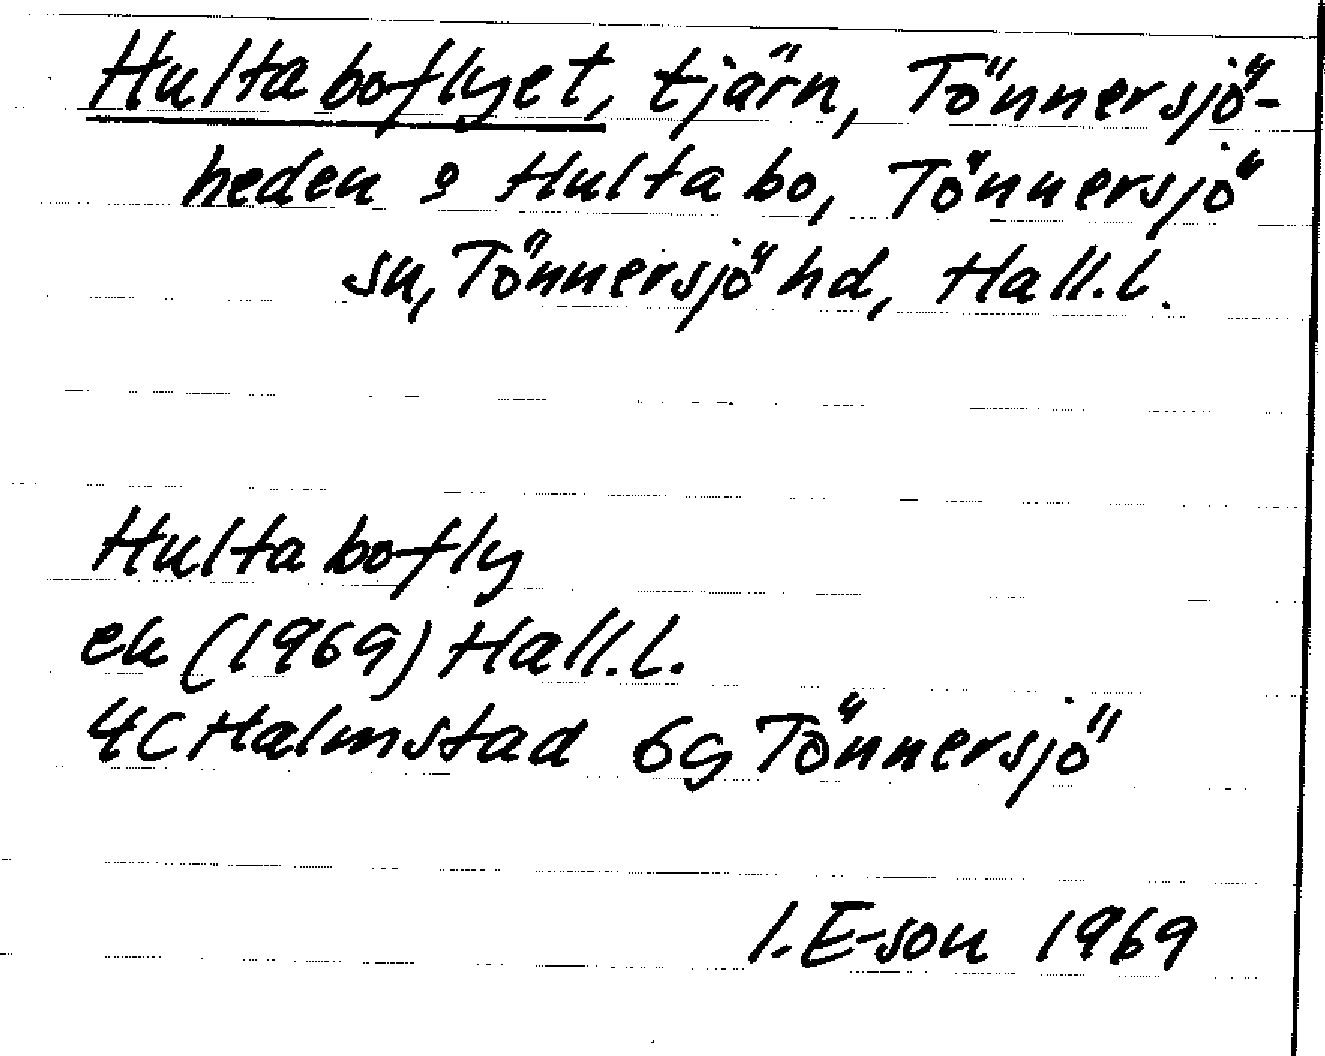 Hultaboflyet, tjärn, Tönnersjö-
heden s Hultabo, Tönnersjö
sn, Tönnersjö hd, Hall.l.
Hultabofly
ek (1969) Hall.l.
4C Halmstad 6g Tönnersjö
I. E-son 1969